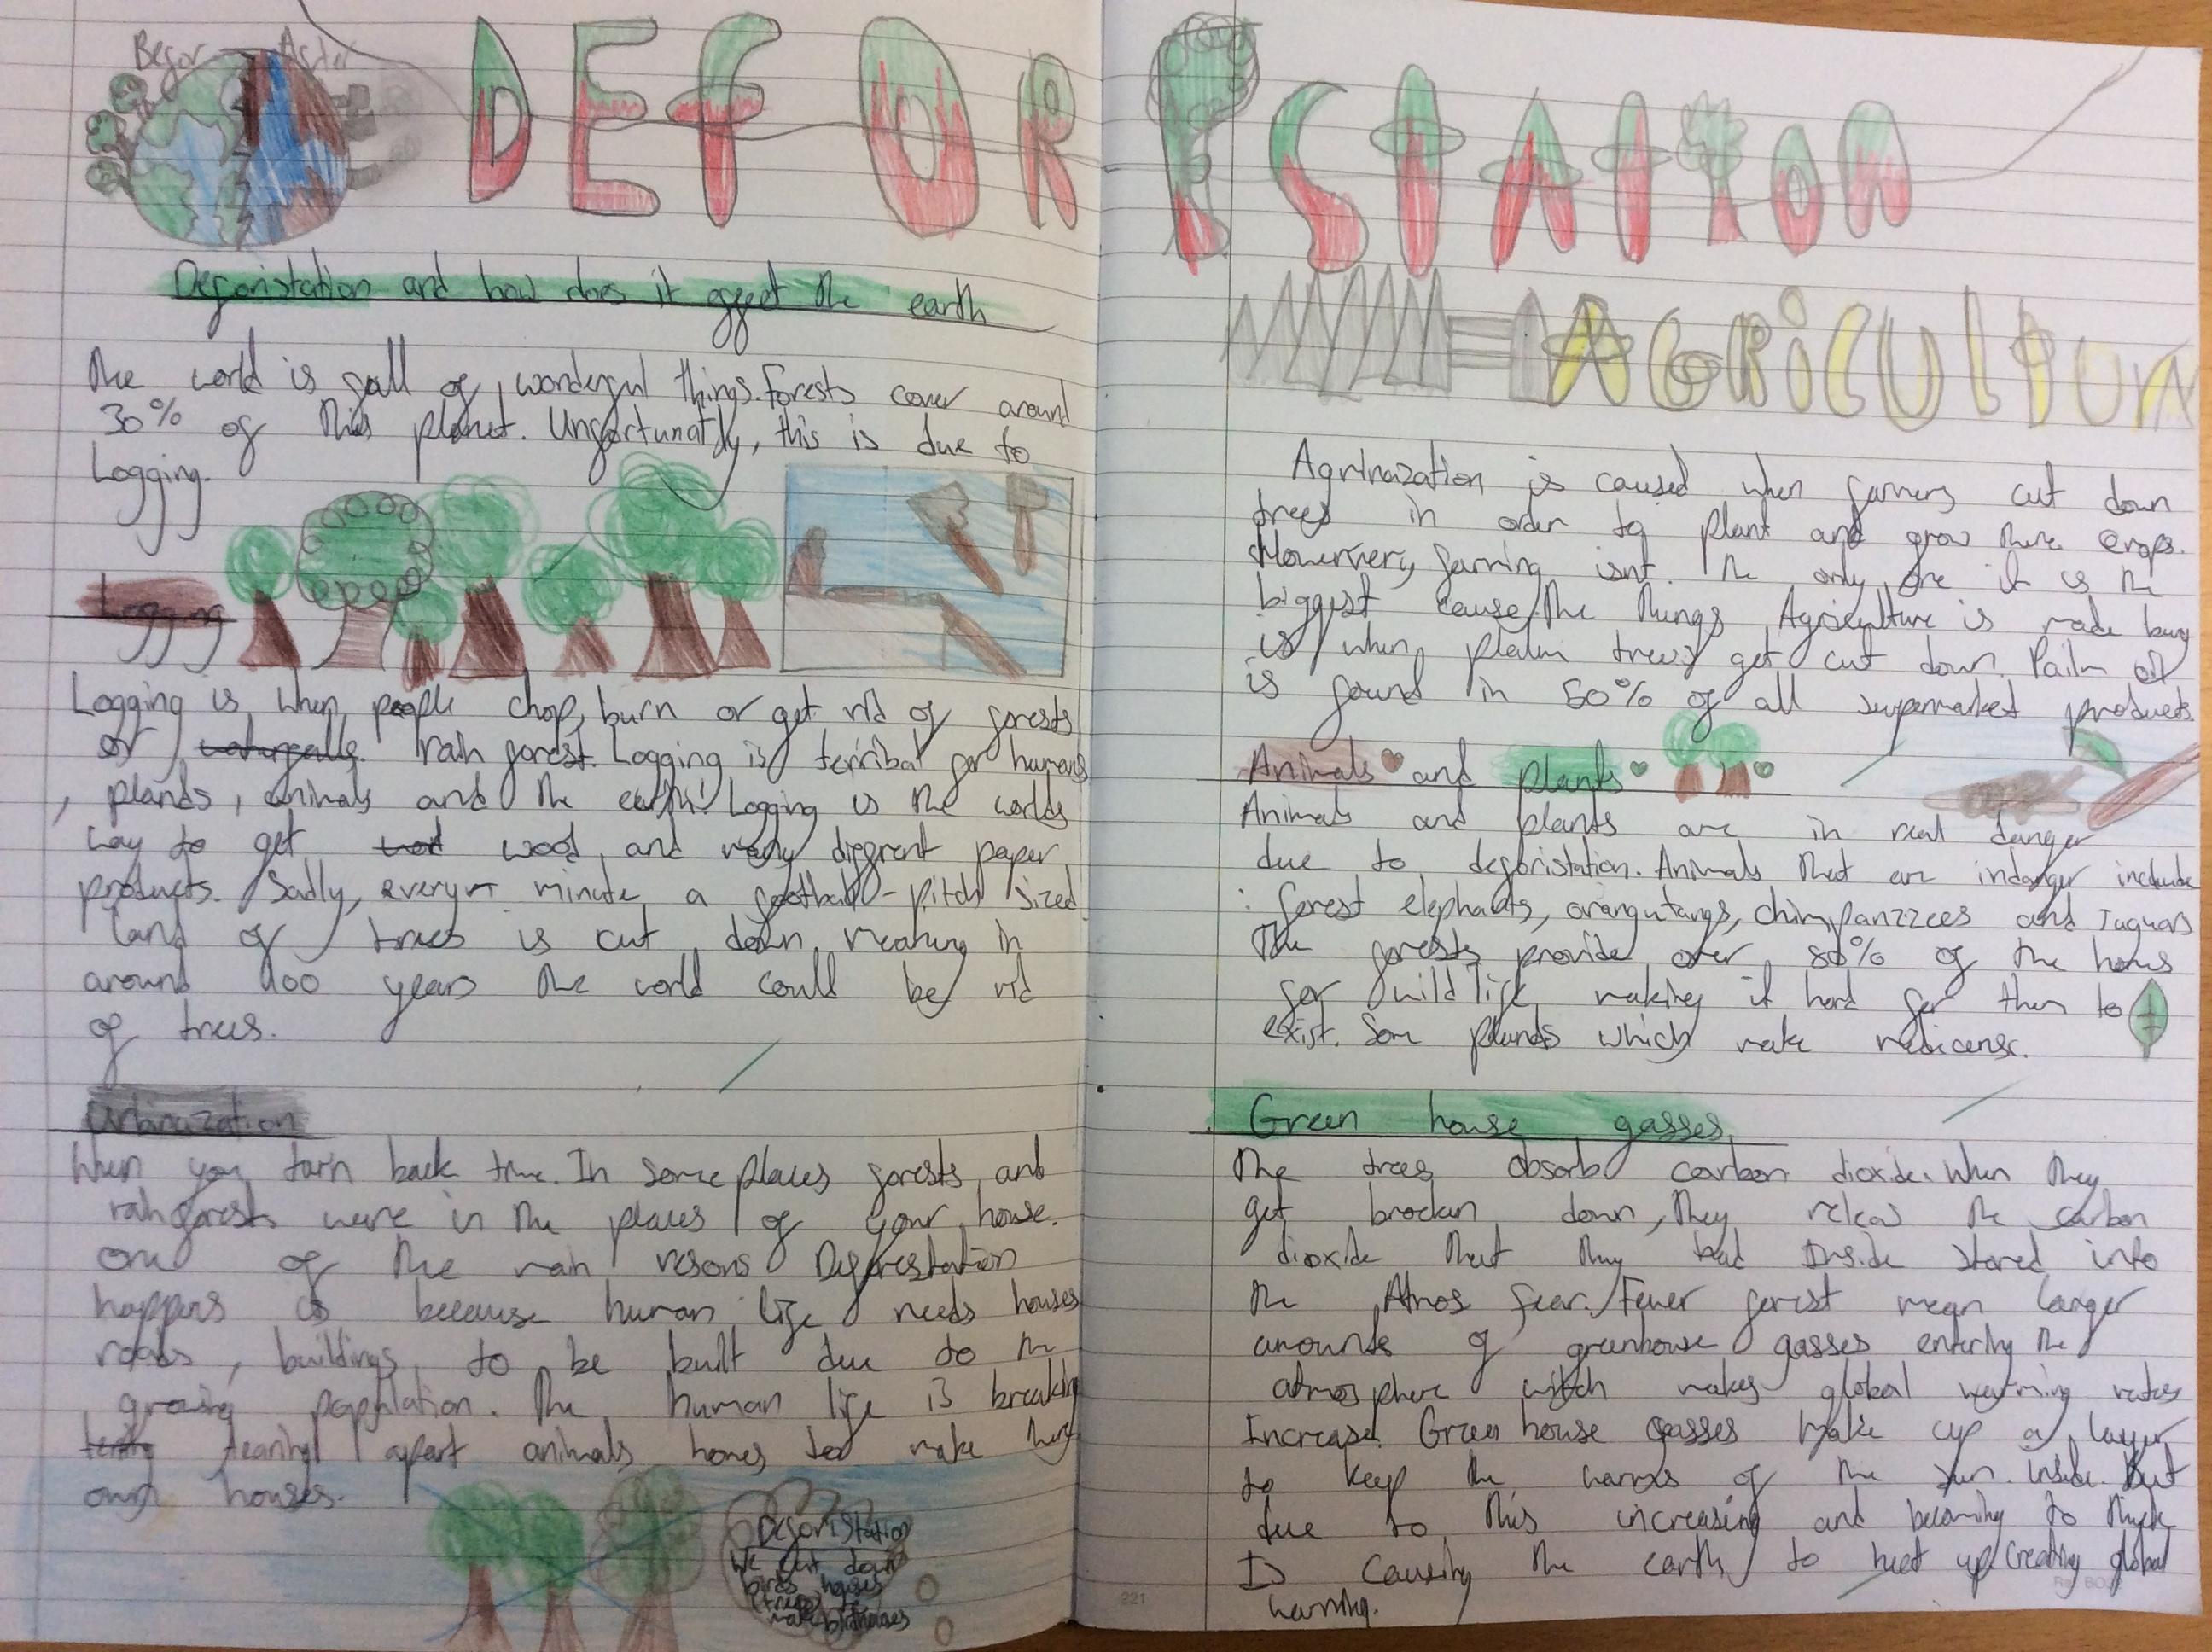 Befor After
DEFOR
Deforistation and how does it effect the earth
The world is full of wonderful things. Forests cover around
30% of this planet. Unfortunatly, this is due to
Logging.
Logging
Logging is when people chop, burn or get rid of forests
or rain forest. Logging is terribal for humans
, plands, animals and the earth! Logging is the worlds
way to get wood and many diffrent paper
products. Sadly, every minute a football-pitch sized
land of trees is cut down, meaning in
around 100 years the world could be rid
of trees.
Urbinazation
When you turn back time. In some places forests and
rainforests were in the places of your house.
one of the main resons Deforestation
happens is because human life needs houses
roads, buildings to be built due to the
growing population. The human life is breaking
tearing apart animals homes too make there
own houses.
Deforistation
We cut down
birds houses
(trees) to
make birdhouses
ESTATION
AGRICULTUR
Agrinazation is caused when farmers cut down
trees in order to plant and grow there crops.
Howervery, farming isnt the only one it is the
biggest cause. The things Agriculture is made buy
is when plalm trees get cut down. Pailm oil
is found in 50% of all supermarket products.
Animals and plants
Animals and plants are in real danger
due to deforistation. Animals that are indanger include
: forest elephants, orangutangs, chimpanzzees and Jaguars
The forests provide over 80% of the homes
for wild life making it hard for them to
exist. Some plands which make medicense.
Green house gasses
The trees absorb carbon dioxide. When they
get brocken down, They releas the carbon
dioxide that they had Inside stored into
the Atmos fear. Fewer forest mean larger
amounts of greenhouse gasses entering the
atmosphere witch makes global warming rates
Increase. Green house gasses make up a layer
to keep the warms of the sun inside. But
due to this increasing and becoming to thick
Is causing the earth to heat up creating global
warming.
221